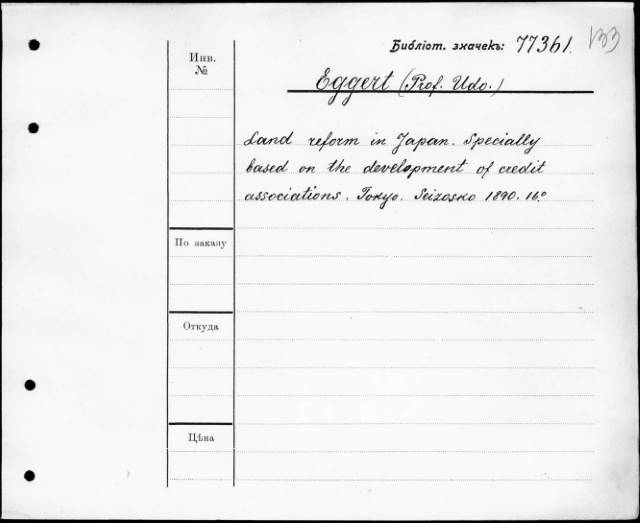 Библіот. значекъ: 77361. 133
Инв.
№
Eggert (Prof. Udo.)
Land reform in Japan. Specially
based on the development of credit
associations. Tokyo. Seizosko 1890. 16.º
По заказу
Откуда
Цѣна